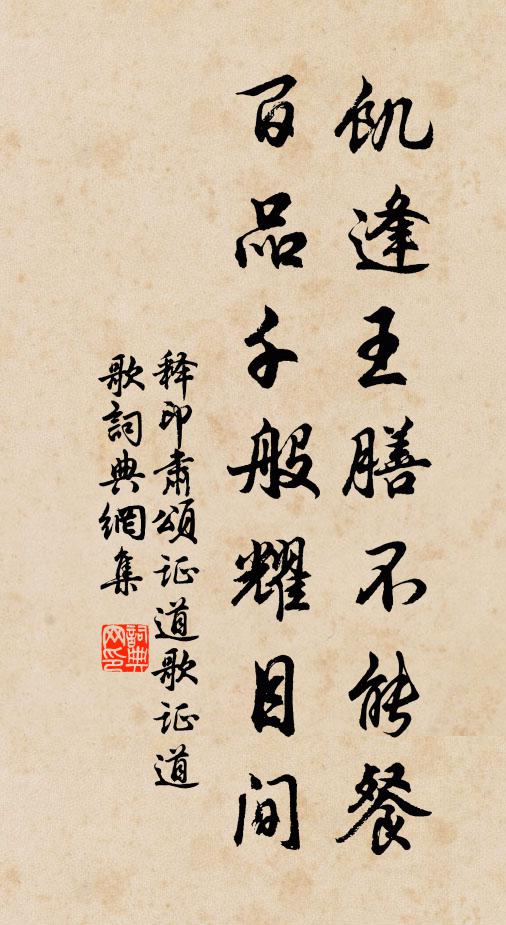 飢逢王膳不能餐
百品千般耀目间
释印肃颂证道歌证道
歌詞典網集
詞典网印